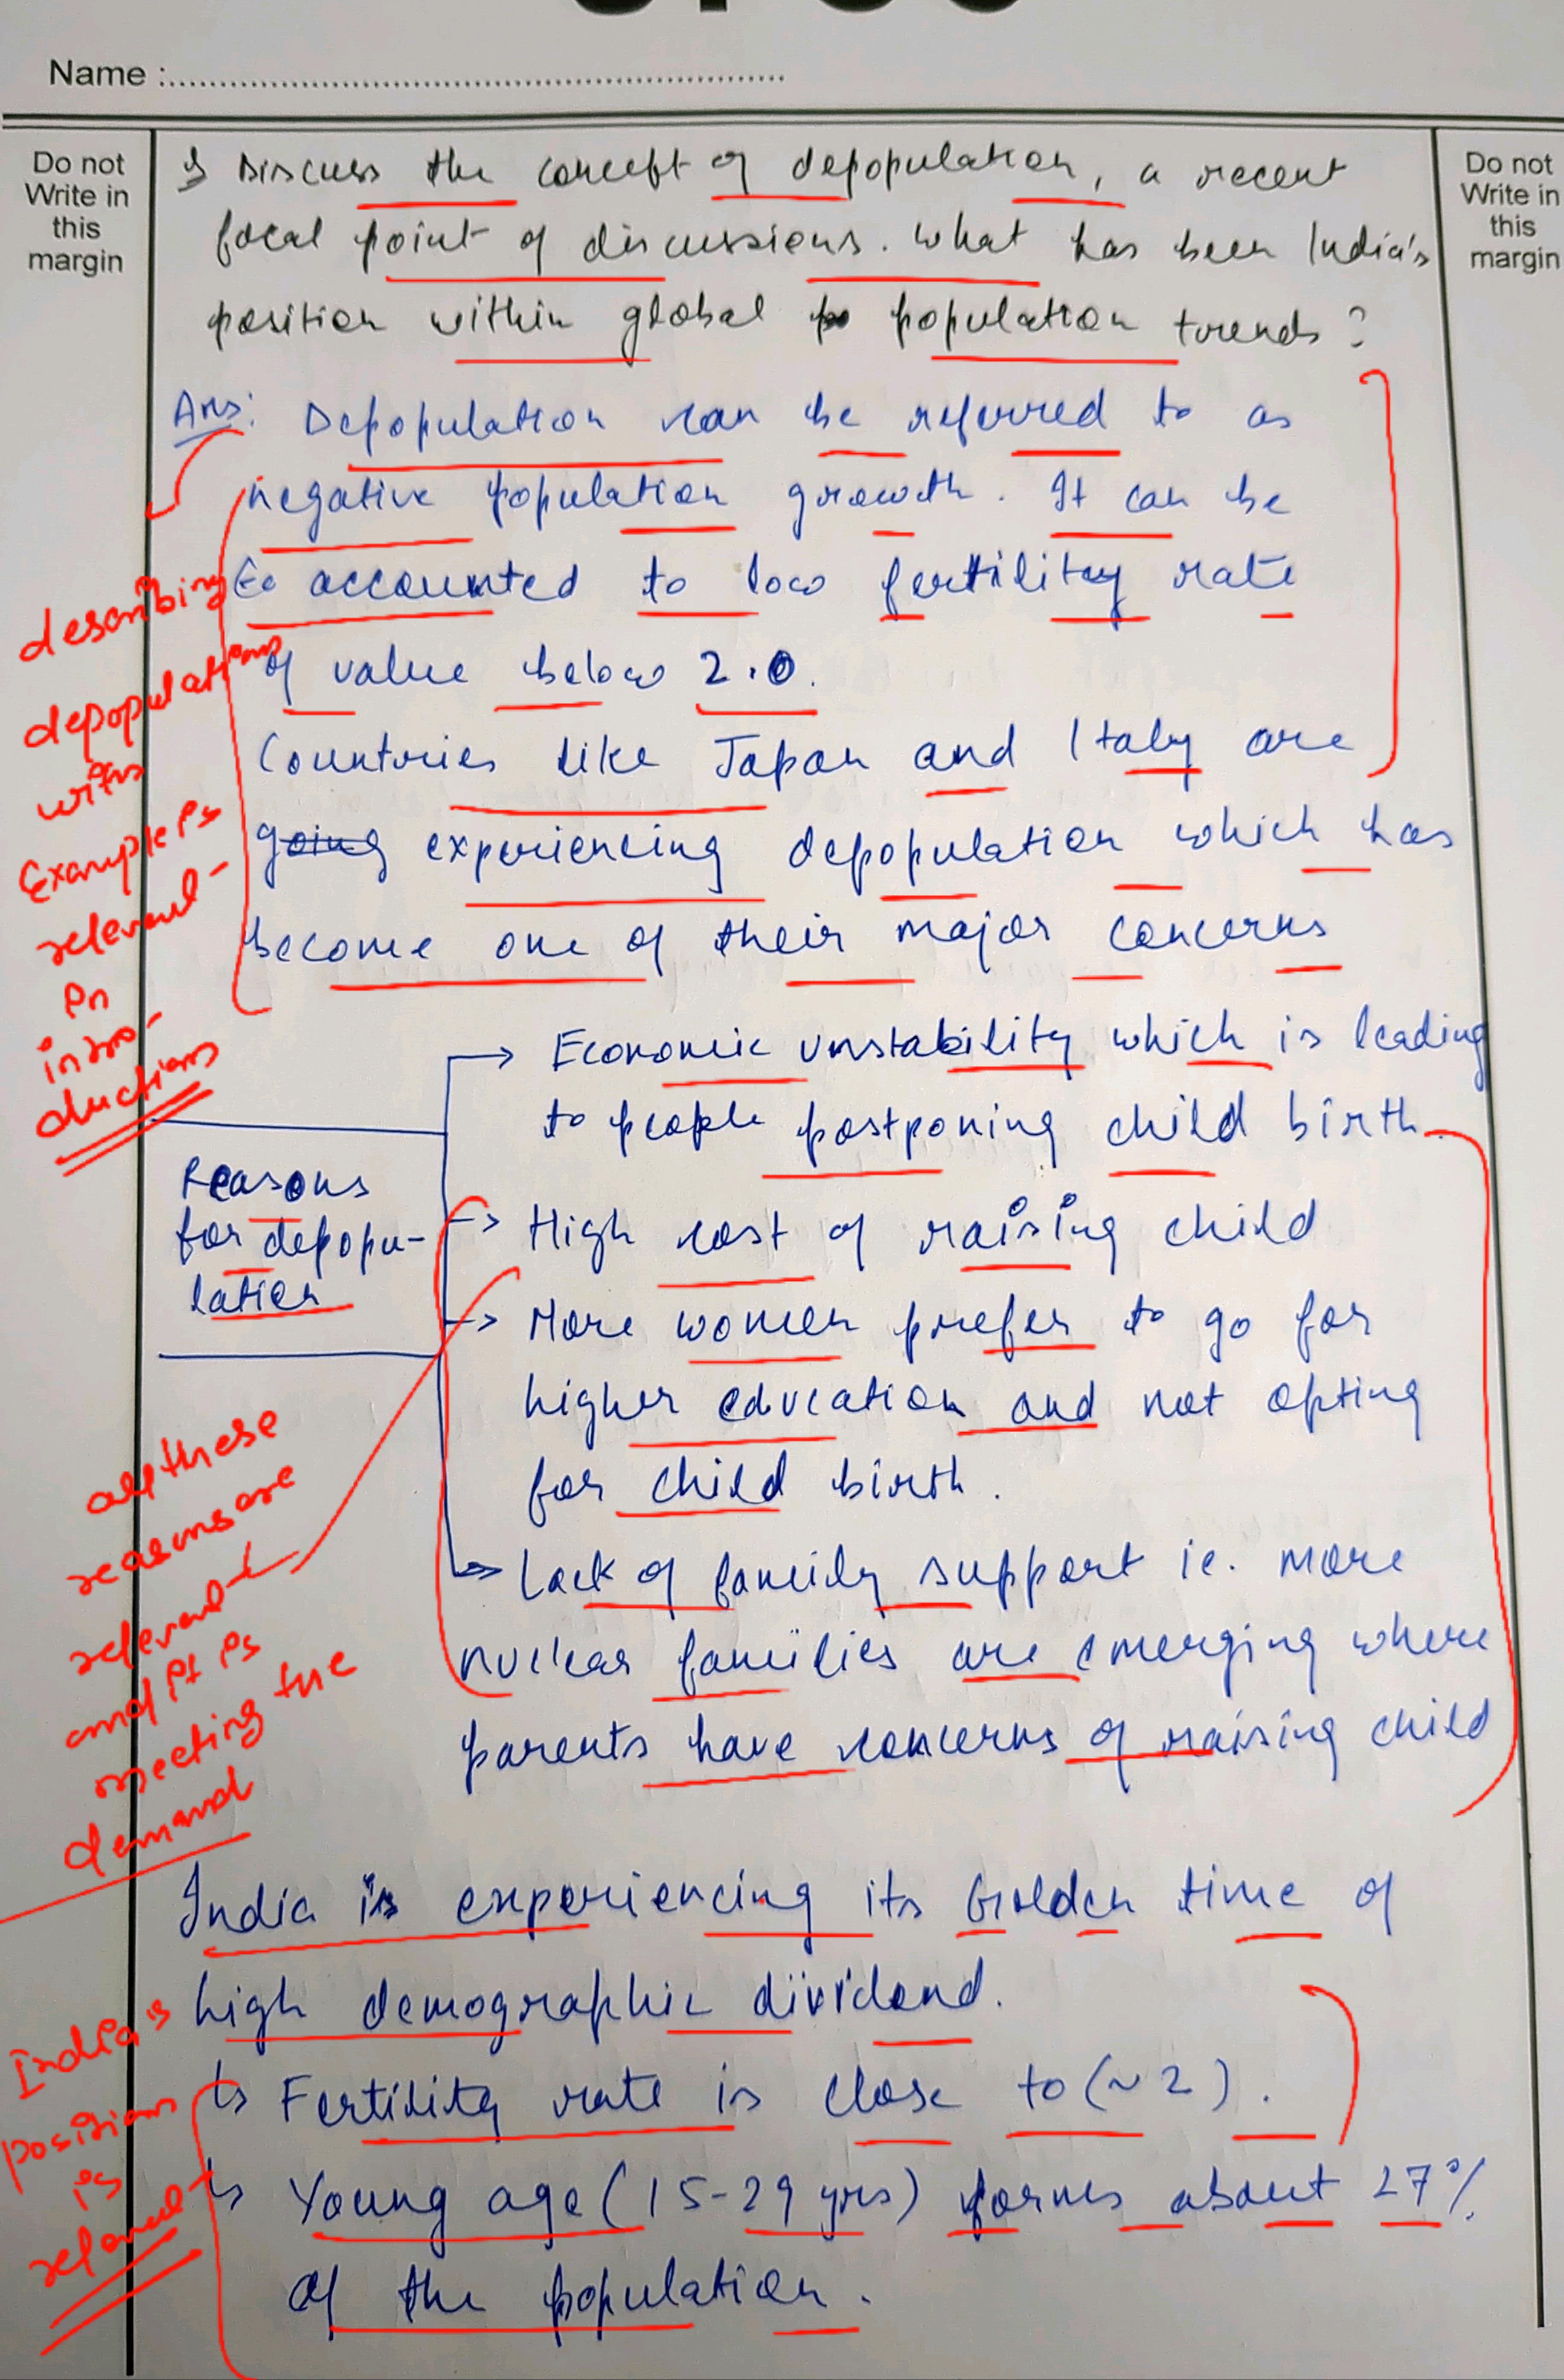 Name :
Do not
Write in
this
margin
Do not
Write in
this
margin
Discuss the concept of depopulation, a recent
focal point of discussions. What has been India's
position within global population trends?
Ans: Depopulation can be referred to as
negative population growth. It can be
accounted to low fertility rate
of value below 2.0.
Countries like Japan and Italy are
going experiencing depopulation which has
become one of their major concerns
describing
depopulations
with
Example is
relevant
in
intro-
ductions
Reasons
for depopu-
lation
→ Economic unstability which is leading
to people postponing child birth.
→ High cost of raising child
→ More women prefer to go for
higher education and not opting
for child birth.
→ Lack of family support ie. more
nuclear families are emerging where
parents have concerns of raising child
all these
reasons are
relevant
and it is
meeting the
demand
India is experiencing its Golden time of
high demographic dividend.
↳ Fertility rate is close to (~2).
↳ Young age (15-29 yrs) forms about 27%
of the population.
India's
position
is
relevant